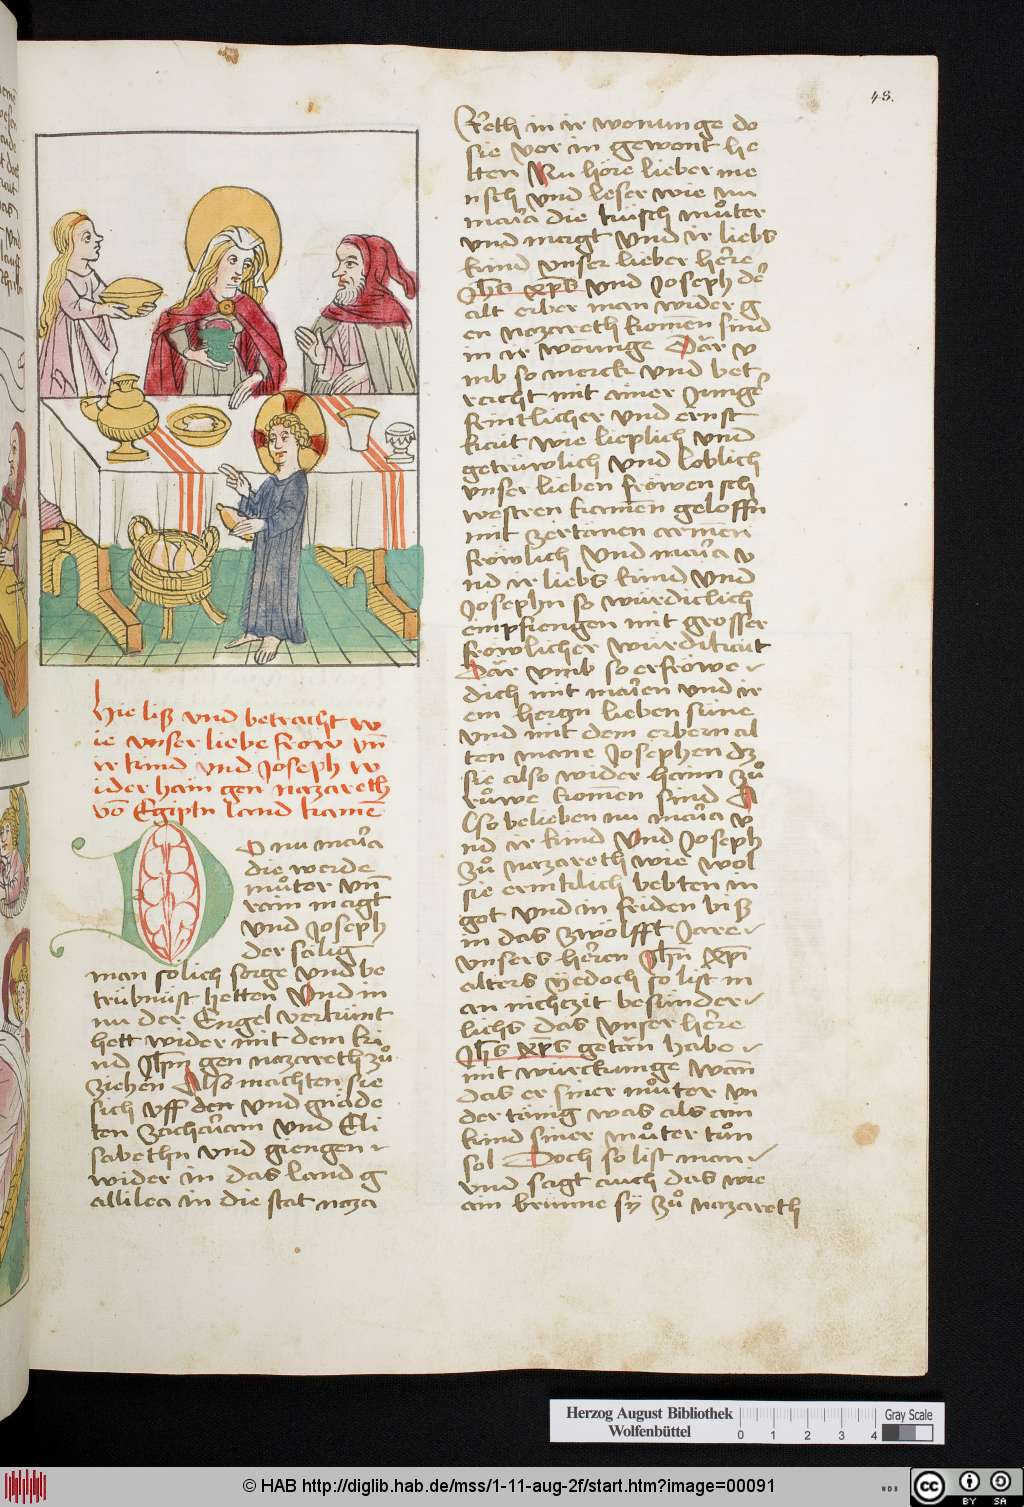 48.
Hie liß vnd betracht w
ie vnser liebe frow vn̄
ir kind vnd Joseph w
ider haim gen nazareth
vō Egiptn land kamē
DO nu mar̄a
die werde
můter vn̄
rain magt
vnd Joseph
der sälig
man sölich sorge vnd be
trübnüst hetten Vnd in
nu der Engel verkünt
hett wider mit dem ki
nd Jhm̄ gen nazareth zů
ziehen Also machten sie
sich vff den vnd gnäde
ten Zachar̄am vnd Eli
sabethn vnd giengen
wider in das land g
allilea in die stat naza
Reth in ir wonunge do
sie vor in gewont he
tten Nu höre lieber me
nsch vnd leser wie nu
mar̄a die küsch můter
vnd magt vnd ir liebs
kind vnser lieber her̄e
Jh̄s xp̄s vnd Joseph d̄
alt erber man wider g
en nazareth komen̄ sind
in ir wonunge Där v
mb so merck vnd bet
racht mit ainer Jung
frintlicher vnd ernst
kait wie lieplich vnd
getrüwlich vnd loblich
vnser lieben fröwen sch
westren kamen̄ geloffn
mit zertänen armen̄
frölich Vnd mar̄a v
nd ir liebs kind Vnd
Josephn so würdiclich
empfiengen mit grosser
fröwlicher würdikait
Där vmb so erfröwe
dich mit mar̄en vnd ir
em hergn lieben süne
vnd mit dem erbern al
ten mane Josephen dz
sie also wider haim zů
růwe komen̄ sind A
lso beliben nu mar̄a v
nd ir kind Vnd Joseph
zů nazareth wie wol
sie ermklich lebten in
got vnd in friden biß
in das zwölfft Jare
vnsers her̄en Jhū xp̄i
alters ÿedoch so list m
an nichczit besunder
lichs das vnser her̄e
Jh̄s xp̄s getän habe
mit würckunge wan̄
das er siner můter vn
dertänig was als ain
kind siner můter tůn
sol Doch so list man
vnd sagt auch das wie
ain brunne sÿ zů nazareth
Herzog August Bibliothek
Wolfenbüttel
0 1 2 3 4
Gray Scale
© HAB http://diglib.hab.de/mss/1-11-aug-2f/start.htm?image=00091
WDB
cc BY SA